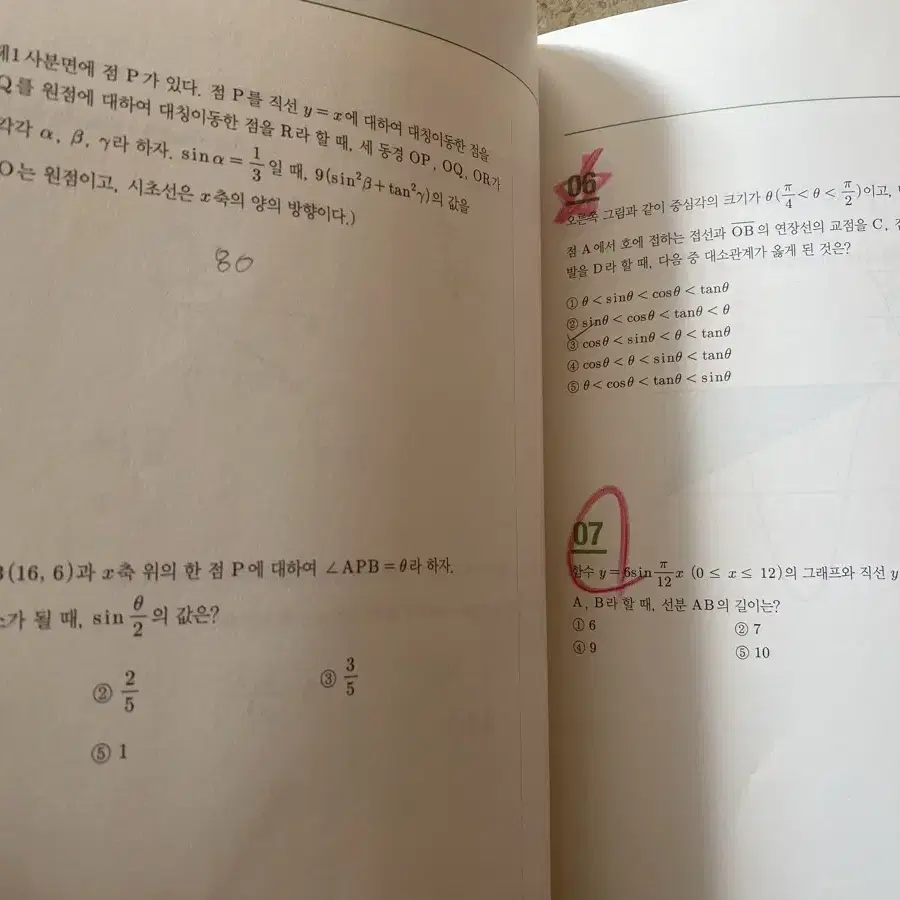 제1사분면에 점 P가 있다. 점 P를 직선 y=x에 대하여 대칭이동한 점을
Q를 원점에 대하여 대칭이동한 점을 R라 할 때, 세 동경 OP, OQ, OR가
각각 α, β, γ라 하자. sinα = 1/3 일 때, 9(sin²β+tan²γ)의 값을
O는 원점이고, 시초선은 x축의 양의 방향이다.)
80
B(16, 6)과 x축 위의 한 점 P에 대하여 ∠APB=θ라 하자.
가 될 때, sin θ/2 의 값은?
② 2/5
③ 3/5
⑤ 1
06
오른쪽 그림과 같이 중심각의 크기가 θ(π/4<θ<π/2)이고,
점 A에서 호에 접하는 접선과 OB의 연장선의 교점을 C,
발을 D라 할 때, 다음 중 대소관계가 옳게 된 것은?
① θ<sinθ<cosθ<tanθ
② sinθ<cosθ<tanθ<θ
③ cosθ<sinθ<θ<tanθ
④ cosθ<θ<sinθ<tanθ
⑤ θ<cosθ<tanθ<sinθ
07
함수 y=6sin π/12 x (0≤x≤12)의 그래프와 직선 y
A, B라 할 때, 선분 AB의 길이는?
① 6
② 7
④ 9
⑤ 10